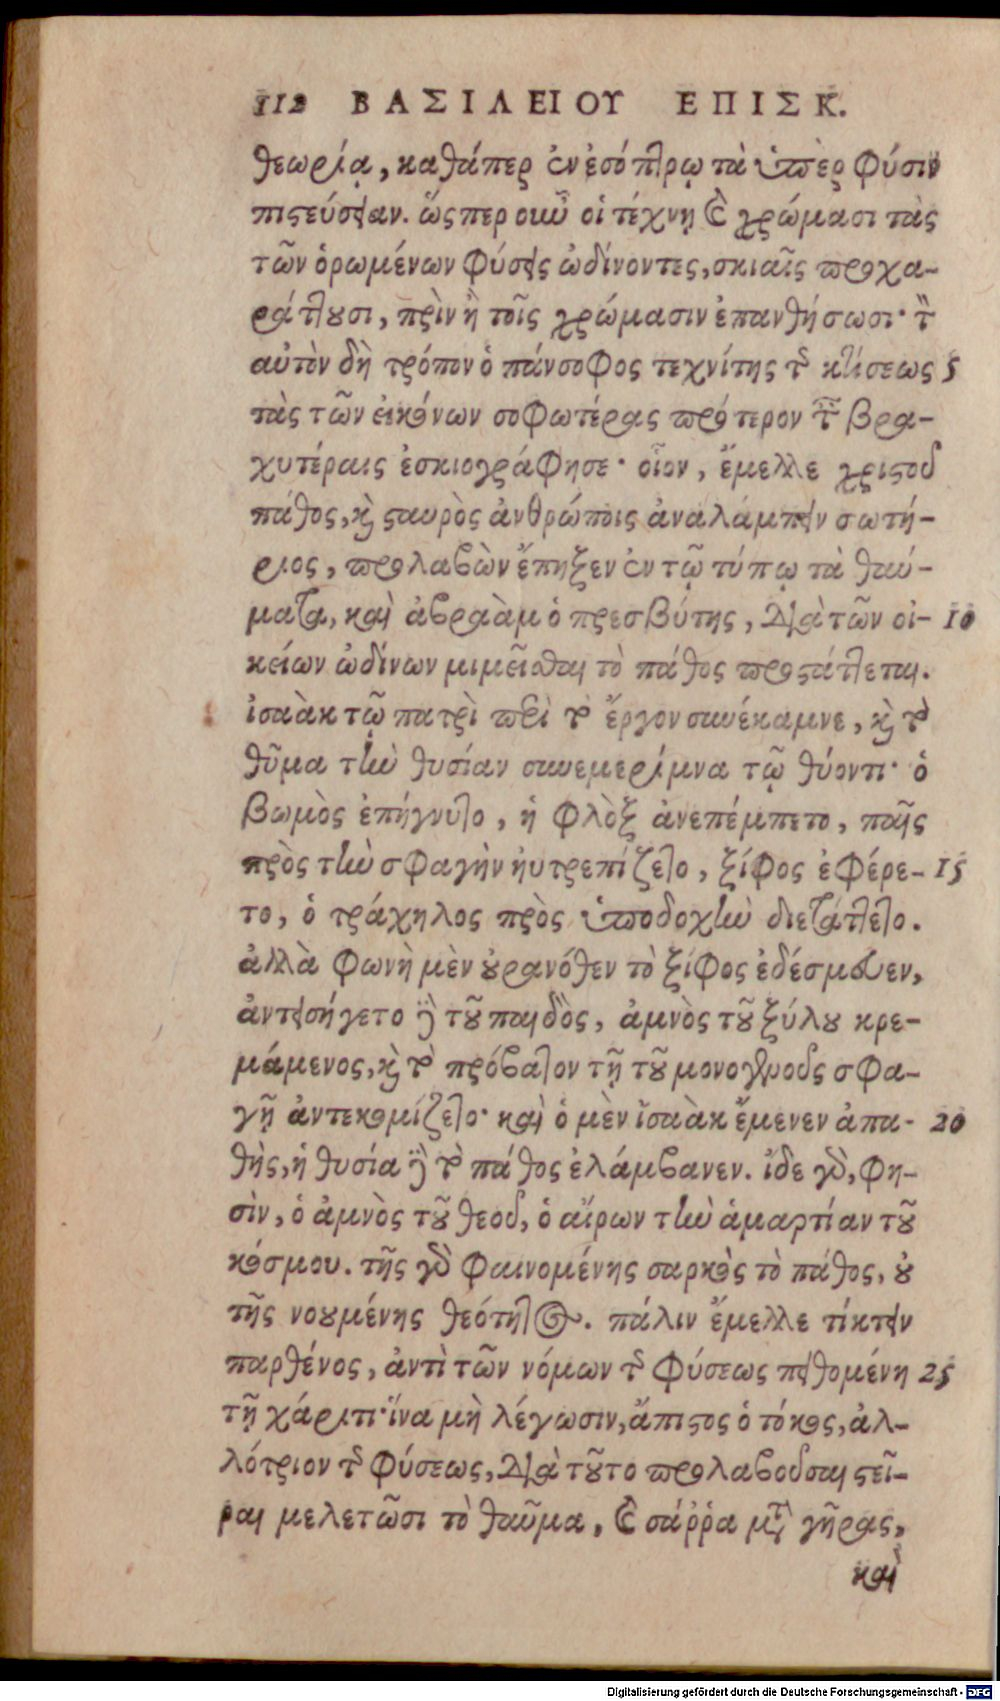 112 ΒΑΣΙΛΕΙΟΥ ΕΠΙΣΚ.
θεωρίᾳ, καθάπερ ἐν ἐσόπτρῳ τὰ ὑπὲρ φύσιν
πιςεύσειαν. ὥςπερ οὖν οἱ τέχνῃ καὶ χρώμασι τὰς
τῶν ὁρωμένων φύσεις ὠδίνοντες, σκιαῖς προχα-
ράττουσι, πρὶν ἢ τοῖς χρώμασιν ἐπανθήσωσι· τὸν
αὐτὸν δὴ τρόπον ὁ πάνσοφος τεχνίτης τῆς κτίσεως 5
τὰς τῶν εἰκόνων σοφωτέρας πρότερον τῶν βρα-
χυτέραις ἐσκιογράφησε· οἷον, ἔμελλε χριςοῦ
πάθος, καὶ ςαυρὸς ἀνθρώποις ἀναλάμπειν σωτή-
ριος, προλαβὼν ἔπηξεν ἐν τῷ τύπῳ τὰ θαύ-
ματα, καὶ ἀβραὰμ ὁ πρεσβύτης, διὰ τῶν οἰ- 10
κείων ὠδίνων μιμεῖσθαι τὸ πάθος προςάττεται.
ἰσαὰκ τῷ πατρὶ περὶ τὸ ἔργον συνέκαμνε, καὶ τὸ
θῦμα τὴν θυσίαν συνεμερίμνα τῷ θύοντι· ὁ
βωμὸς ἐπήγνυτο, ἡ φλὸξ ἀνεπέμπετο, παῖς
πρὸς τὴν σφαγὴν ηὐτρεπίζετο, ξίφος ἐφέρε- 15
το, ὁ τράχηλος πρὸς ὑποδοχὴν διετάττετο.
ἀλλὰ φωνὴ μὲν οὐρανόθεν τὸ ξίφος ἐδέσμευεν,
ἀντεισήγετο δὲ τοῦ παιδὸς, ἀμνὸς τοῦ ξύλου κρε-
μάμενος, καὶ τὸ πρόβατον τῇ τοῦ μονογενοῦς σφα-
γῇ ἀντεκομίζετο· καὶ ὁ μὲν ἰσαὰκ ἔμενεν ἀπα- 20
θὴς, ἡ θυσία δὲ τὸ πάθος ἐλάμβανεν. ἴδε γὰρ, φη-
σὶν, ὁ ἀμνὸς τοῦ θεοῦ, ὁ αἴρων τὴν ἁμαρτίαν τοῦ
κόσμου. τῆς γὰρ φαινομένης σαρκὸς τὸ πάθος, οὐ
τῆς νουμένης θεότητος. πάλιν ἔμελλε τίκτειν
παρθένος, ἀντὶ τῶν νόμων τῆς φύσεως πειθομένη 25
τῇ χάριτι· ἵνα μὴ λέγωσιν, ἄπιςος ὁ τόκος, ἀλ-
λότριον τῆς φύσεως, διὰ τοῦτο προλαβοῦσαι ςεῖ-
ραι μελετῶσι τὸ θαῦμα, καὶ σάῤῥα μετὰ γῆρας,
καὶ
Digitalisierung gefördert durch die Deutsche Forschungsgemeinschaft - DFG